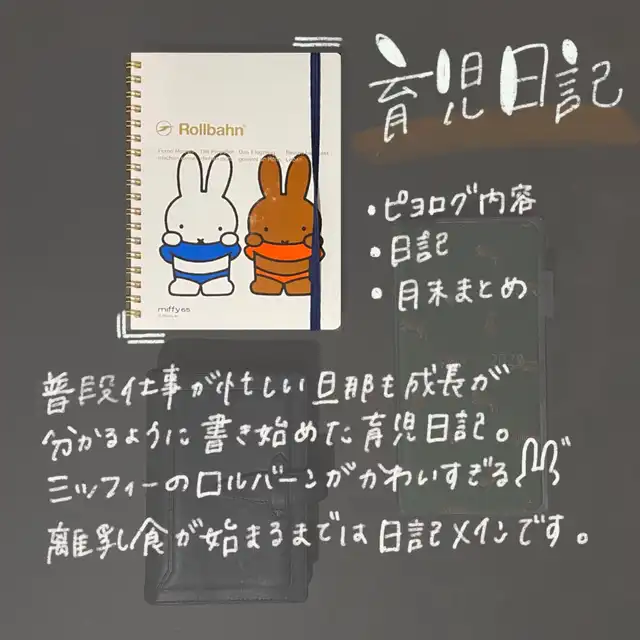 育児日記
Rollbahn
・ピヨログ内容
・日記
・月末まとめ
miffy 65
普段仕事が忙しい旦那も成長が
分かるように書き始めた育児日記。
ミッフィーのロルバーンがかわいすぎる
離乳食が始まるまでは日記メインです。